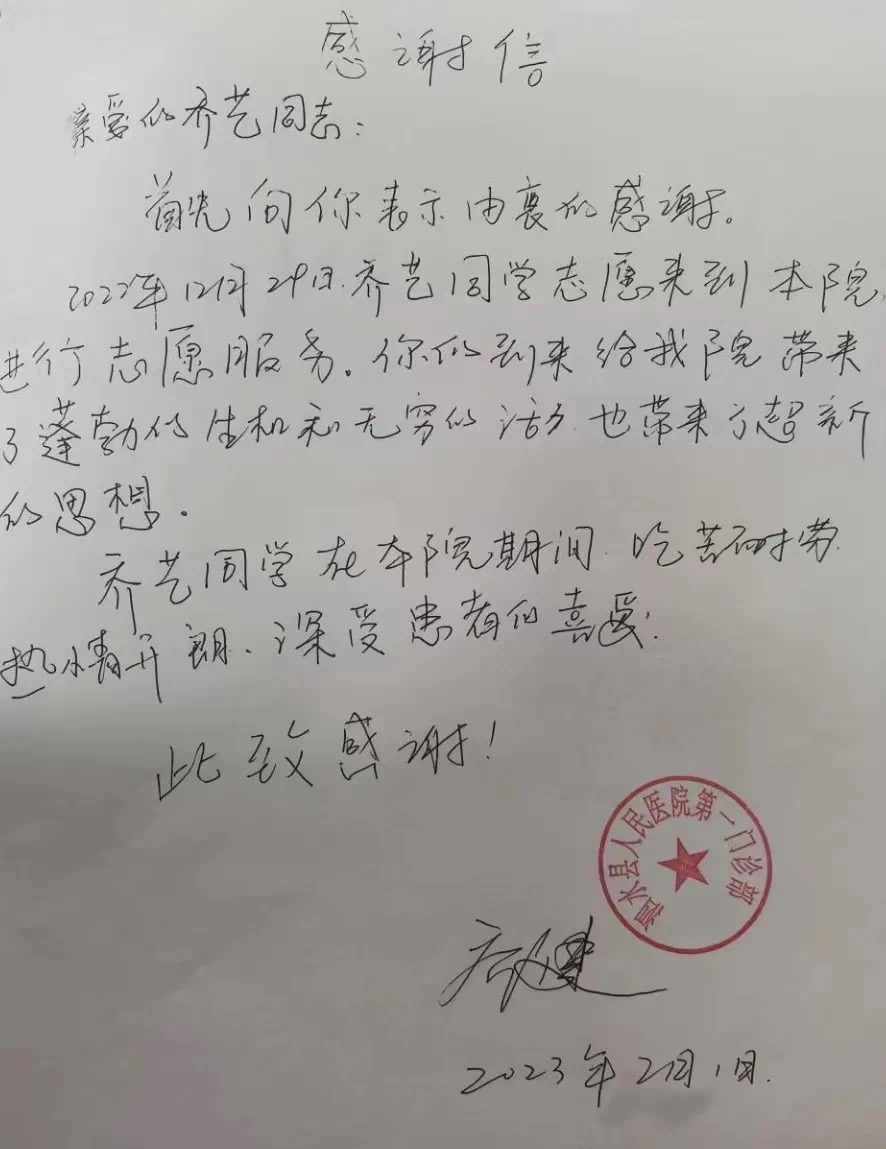 感谢信
亲爱的乔艺同志：
首先向你表示由衷的感谢。
2022年12月29日.乔艺同学志愿来到本院,
进行志愿服务。你的到来给我院带来
了蓬勃的生机和无穷的活力.也带来了超新
的思想。
乔艺同学在本院期间.吃苦耐劳.
热情开朗、深受患者的喜爱.
此致感谢！
泗水县人民医院第一门诊部
2023年2月1日.